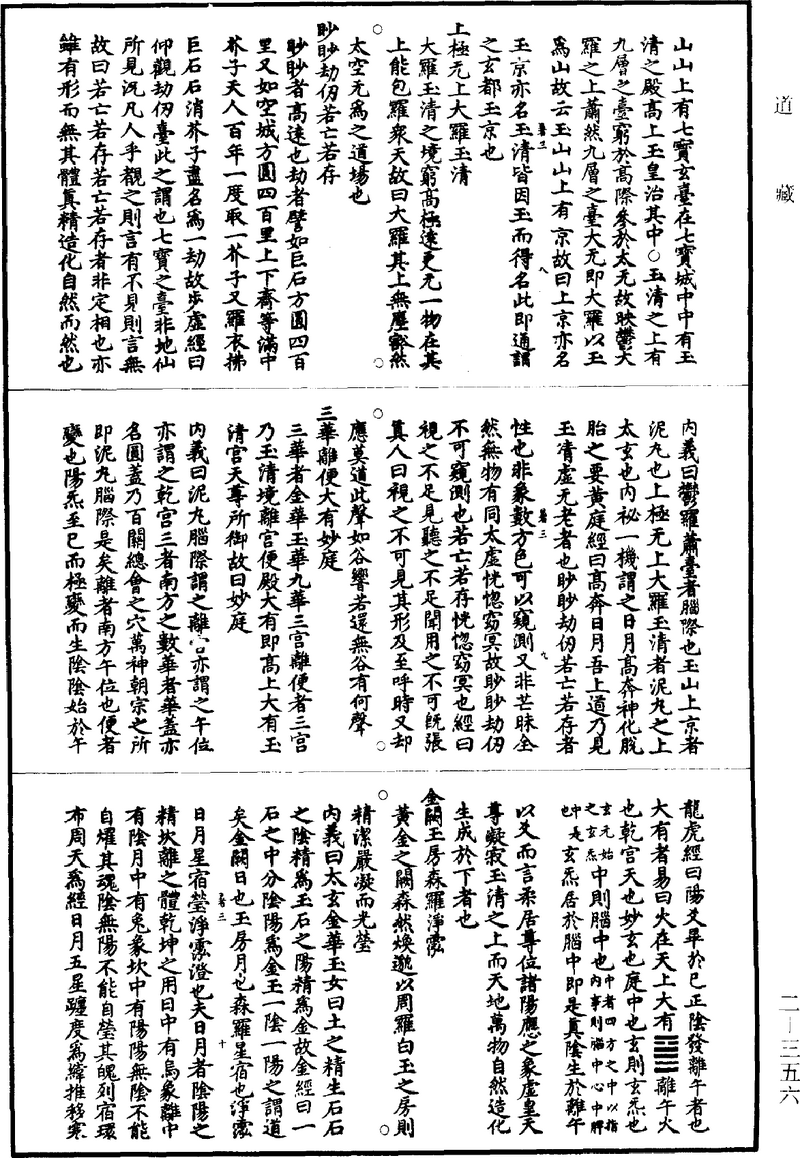 道藏
山山上有七寶玄臺在七寶城中中有玉
清之殿高上玉皇治其中○玉清之上有
九層之臺窮於高際參於太无故映鬱大
羅之上蕭然九層之臺大无即大羅以玉
為山故云玉山山上有京故曰上京亦名
玉京亦名玉清皆因玉而得名此即通謂
之玄都玉京也
上極无上大羅玉清
大羅玉清之境窮高極遠更无一物在其
上能包羅衆天故曰大羅其上無塵豁然
太空无為之道場也
眇眇劫仞若亡若存
眇眇者高遠也劫者譬如巨石方圓四百
里又如空城方圓四百里上下齊等滿中
芥子天人百年一度取一芥子又羅衣拂
巨石石消芥子盡名為一劫故步虛經曰
仰觀劫仞臺此之謂也七寶之臺非地仙
所見況凡人乎覩之則言有不見則言無
故曰若亡若存若亡若存者非定相也亦
雖有形而無其體真精造化自然而然也
內義曰鬱羅蕭臺者腦際也玉山上京者
泥丸也上極无上大羅玉清者泥丸之上
太玄也內祕一機謂之日月高奔神化脫
胎之要黃庭經曰高奔日月吾上道乃見
玉清虛无老者也眇眇劫仞若亡若存者
性也非象數方色可以窺測又非芒昧全
然無物有同太虛恍惚窈冥故眇眇劫仞
不可窺測也若亡若存恍惚窈冥也經曰
視之不足見聽之不足聞用之不可旣張
真人曰視之不可見其形及至呼時又却
應莫道此聲如谷響若還無谷有何聲
三華離便大有妙庭
三華者金華玉華九華三宮離便者三宮
乃玉清境離宮便殿大有即高上大有玉
清宮天尊所御故曰妙庭
內義曰泥丸腦際謂之離宮亦謂之午位
亦謂之乾宮三者南方之數華者華蓋亦
名圓蓋乃百關總會之穴萬神朝宗之所
即泥丸腦際是矣離者南方午位也便者
變也陽炁至巳而極變而生陰陰始於午
龍虎經曰陽爻畢於巳正陰發離午者也
大有者易曰火在天上大有䷍離午火
也乾宮天也妙玄也庭中也玄則玄炁也
玄元始之玄炁中則腦中也中者四方之中以指內事則腦中心中脾中也
中長玄炁居於腦中即是真陰生於離午
以爻而言柔居尊位諸陽應之象虛皇天
尊凝寂玉清之上而天地萬物自然造化
生成於下者也
金闕玉房森羅淨霐
黃金之闕森然煥邈以周羅白玉之房則
精潔嚴凝而光瑩
內義曰太玄金華玉女曰土之精生石石
之陰精為玉石之陽精為金故金經曰一
石之中分陰陽為金玉一陰一陽之謂道
矣金闕日也玉房月也森羅星宿也淨霐
日月星宿瑩淨霐澄也夫日月者陰陽之
精坎離之體乾坤之用日中有烏象離中
有陰月中有兔象坎中有陽陽無陰不能
自燿其魂陰無陽不能自瑩其魄列宿環
布周天為經日月五星躔度為緯推移寒
二—三五六